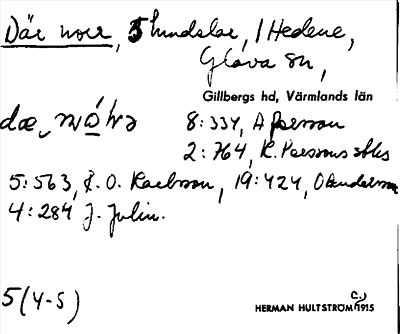 Där norr, 5 lindelar, / Hedene,
Glava sn,
Gillbergs hd, Värmlands län
8:334, A Persson
2:764, K. Perssons stbs
5:563, K. O. Karlsson, 19:424, O Andersson
4:284 J. Julin.
5 (4-5)
HERMAN HULTSTRÖM c. 1915